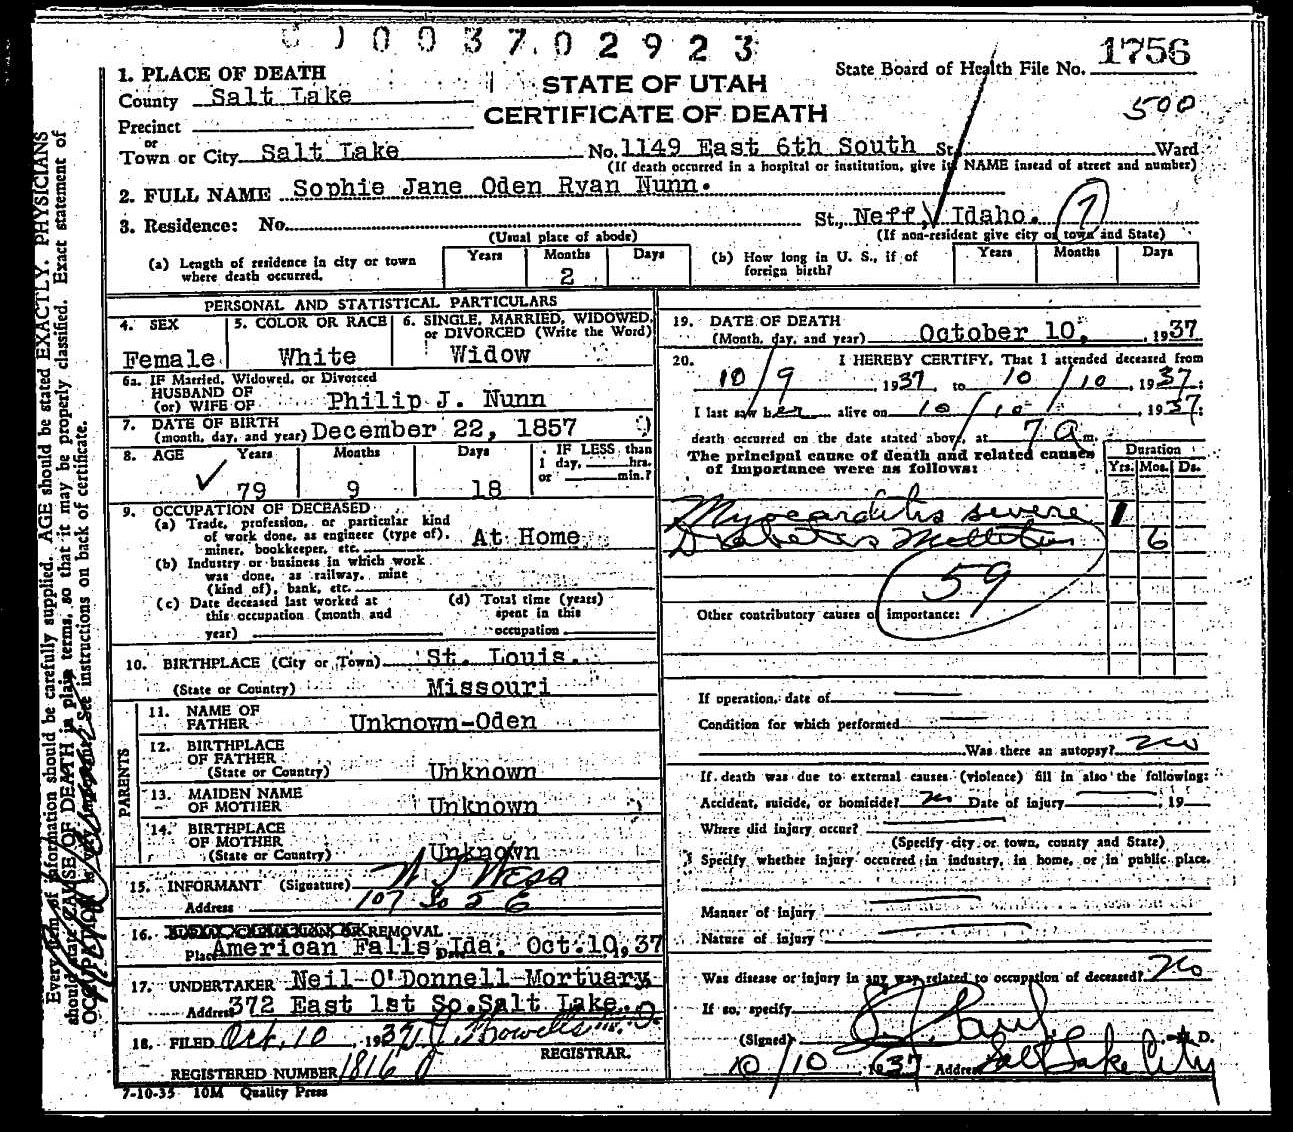 0037.02923
1756
1. PLACE OF DEATH
STATE OF UTAH
State Board of Health File No.
County Salt Lake
CERTIFICATE OF DEATH
500
Precinct
or
Town or City Salt Lake No. 1149 East 6th South St. Ward
(If death occurred in a hospital or institution, give its NAME insead of street and number)
2. FULL NAME Sophie Jane Oden Ryan Nunn.
3. Residence: No. St., Neff, Idaho.
(Usual place of abode) (If non-resident give city or town and State)
(a) Length of residence in city or town where death occurred. Years Months 2 Days
(b) How long in U. S., if of foreign birth? Years Months Days
PERSONAL AND STATISTICAL PARTICULARS
4. SEX Female
5. COLOR OR RACE White
6. SINGLE, MARRIED, WIDOWED, or DIVORCED (Write the Word) Widow
6a. IF Married, Widowed, or Divorced
HUSBAND OF
(or) WIFE OF Philip J. Nunn
7. DATE OF BIRTH
(month, day, and year) December 22, 1857
8. AGE Years 79 Months 9 Days 18
IF LESS than
1 day, hrs.
or min.?
9. OCCUPATION OF DECEASED
(a) Trade, profession, or particular kind
of work done, as engineer (type of),
miner, bookkeeper, etc. At Home
(b) Industry or business in which work
was done, as railway, mine
(kind of), bank, etc.
(c) Date deceased last worked at
this occupation (month and
year)
(d) Total time (years)
spent in this
occupation
10. BIRTHPLACE (City or Town) St. Louis.
(State or Country) Missouri
PARENTS
11. NAME OF
FATHER Unknown-Oden
12. BIRTHPLACE
OF FATHER
(State or Country) Unknown
13. MAIDEN NAME
OF MOTHER Unknown
14. BIRTHPLACE
OF MOTHER
(State or Country) Unknown
15. INFORMANT (Signature)
Address 107 So 5 E
16. REMOVAL
Place American Falls, Ida. Date Oct.10,37
17. UNDERTAKER Neil-O'Donnell-Mortuary
Address 372 East 1st So.Salt Lake.
18. FILED Oct. 10, 1937
REGISTRAR.
REGISTERED NUMBER 1816
7-10-35 10M Quality Press
19. DATE OF DEATH
(Month, day, and year) October 10, 1937
20. I HEREBY CERTIFY, That I attended deceased from
10/9, 1937, to 10/10, 1937;
I last saw her alive on 10/10, 1937;
death occurred on the date stated above, at 7 a m.
The principal cause of death and related causes
of importance were as follows:
Duration
Yrs. Mos. Ds.
Myocarditis severe 1
Diabetes Mellitus 6
59
Other contributory causes of importance:
If operation, date of
Condition for which performed
Was there an autopsy? no
If death was due to external causes (violence) fill in also the following:
Accident, suicide, or homicide? no Date of injury , 19
Where did injury occur?
(Specify city or town, county and State)
Specify whether injury occurred in industry, in home, or in public place.
Manner of injury
Nature of injury
Was disease or injury in any way related to occupation of deceased? no
If so, specify
(Signed) M. D.
10/10 1937 Address Salt Lake City
Every item of information should be carefully supplied. AGE should be stated EXACTLY. PHYSICIANS
should state CAUSE OF DEATH in plain terms, so that it may be properly classified. Exact statement of
OCCUPATION is very important. See instructions on back of certificate.